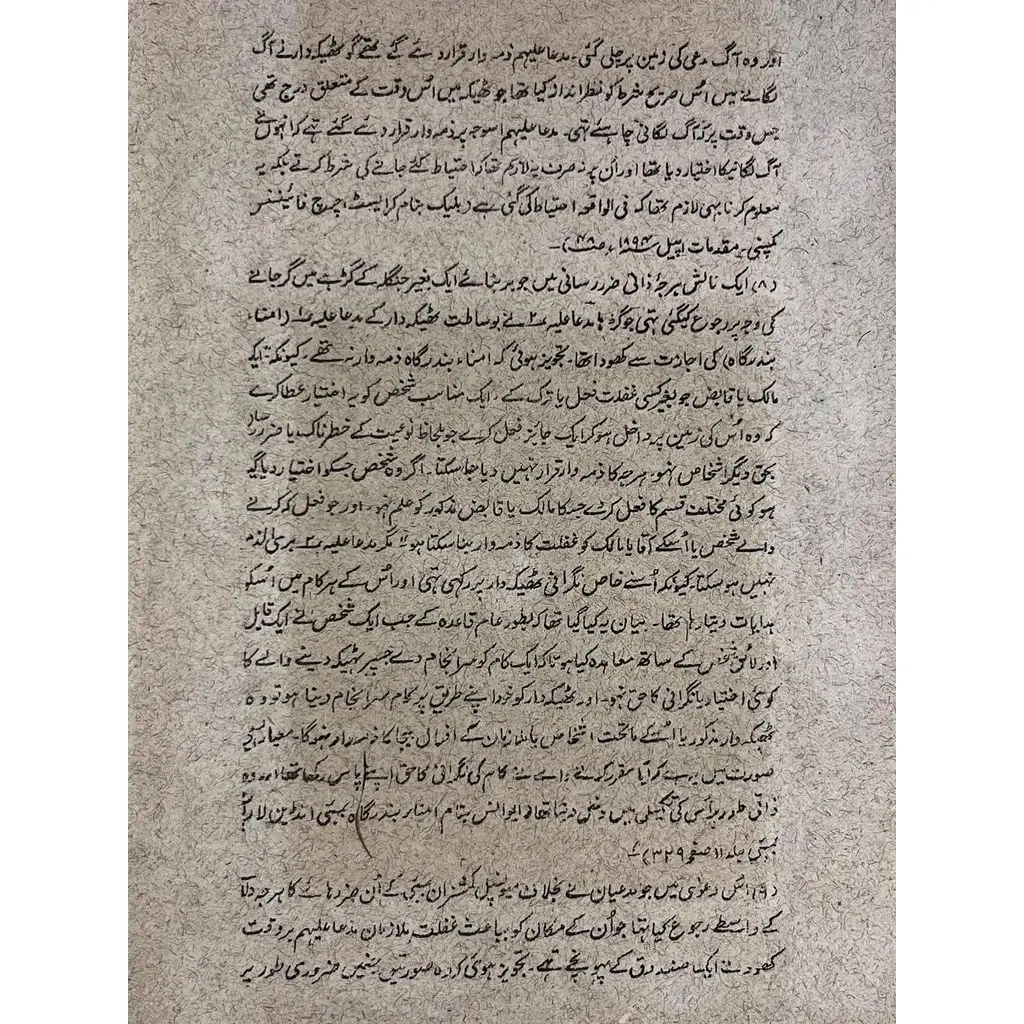 اور وہ آگ مدعی کی زمین پر چلی گئی۔ مدعا علیہم ذمہ وار قرار دئے گئے تھے گو ٹھیکہ دار نے آگ
لگانے میں اُس صریح شرط کو نظر انداز کیا تھا جو ٹھیکہ میں اُس وقت کے متعلق درج تھی
جس وقت پر کہ آگ لگانی چاہئے تہی۔ مدعا علیہم اسوجہ پر ذمہ وار قرار دئے گئے تہے کہ انہوں نے
آگ لگانیکا اختیار دیا تھا اور اُن پر نہ صرف یہ لازم تھا کہ احتیاط کئے جانے کی شرط کرتے بلکہ یہ
معلوم کرنا بہی لازم تھا کہ فی الواقعہ احتیاط کی گئی ہے (بلیک بنام کرائسٹ چرچ فائیننس
کمپنی۔ مقدمات اپیل ۱۸۹۴ء صفحہ ۴۸)۔
(۸) ایک نالش ہرجہ ذاتی ضرر رسانی میں جو بر بنائے ایک بغیر جنگلہ کے گڑہے میں گر جانے
کی وجہ پر رجوع کیگئی تہی جو گڑہا مدعا علیہ ۲ نے بوساطت ٹھیکہ دار کے مدعا علیہ ۱ (امناء
بندرگاہ) کی اجازت سے کھودا تھا۔ تجویز ہوئی کہ امناء بندرگاہ ذمہ وار نہ تھے۔ کیونکہ ایک
مالک یا قابض جو بغیر کسی غفلت فعل یا ترک کے۔ ایک مناسب شخص کو یہ اختیار عطا کرے
کہ وہ اُس کی زمین پر داخل ہو کر ایک جائز فعل کرے جو بلحاظ نوعیت کے خطرناک یا ضرر رساں
بحق دیگر اشخاص نہو۔ ہرجہ کا ذمہ وار قرار نہیں دیا جا سکتا۔ اگر وہ شخص جسکو اختیار دیا گیا
ہو کوئی مختلف قسم کا فعل کرے جسکا مالک یا قابض مذکور کو علم نہو۔ اور جو فعل کہ کرنے
والے شخص یا اُسکے آقا یا مالک کو غفلت کا ذمہ وار بنا سکتا ہو" مگر مدعا علیہ ۲ بری الذمہ
نہیں ہو سکتا۔ کیونکہ اُسنے خاص نگرانی ٹھیکہ دار پر رکہی تہی اور اُس کے ہر کام میں اُسکو
ہدایات دیتا رہا تھا۔ بیان یہ کیا گیا تھا کہ بطور عام قاعدہ کے جب ایک شخص نے ایک قابل
اور لائق شخص کے ساتھ معاہدہ کیا ہو تاکہ ایک کام کو سرانجام دے جسپر ٹہیکہ دینے والے کا
کوئی اختیار یا نگرانی کا حق نہو۔ اور ٹھیکہ دار کو خود اپنے طریق پر کام سرانجام دینا ہو تو وہ
ٹھیکہ دار مذکور یا اُسکے ماتحت اشخاص یا ملازمان کے افعال بیجا کا ذمہ وار نہوگا۔ معیار ایسی
صورت میں یہ ہے کہ آیا مقرر کرنے والے نے کام کی نگرانی کا حق اپنے پاس رکھا تھا اور وہ
ذاتی طور پر اُس کی تکمیل میں دخل دیتا تھا (ایوانس بنام امناء بندرگاہ بمبئی انڈین لا رپورٹ
بمبئی جلد ۱۱ صفحہ ۳۲۹)۔
(۹) اس دعویٰ میں جو مدعیان نے بخلاف میونسپل کمشنران بمبئی کے اُن ضررہائے کا ہرجہ دلا
کے واسطے رجوع کیا تہا جو اُن کے مکان کو بباعث غفلت ملازمان مدعا علیہم بروقت
کھودنے ایک صندوق کے پہونچے تہے۔ تجویز ہوئی کہ وہ صورتیں جنمیں ضروری طور پر